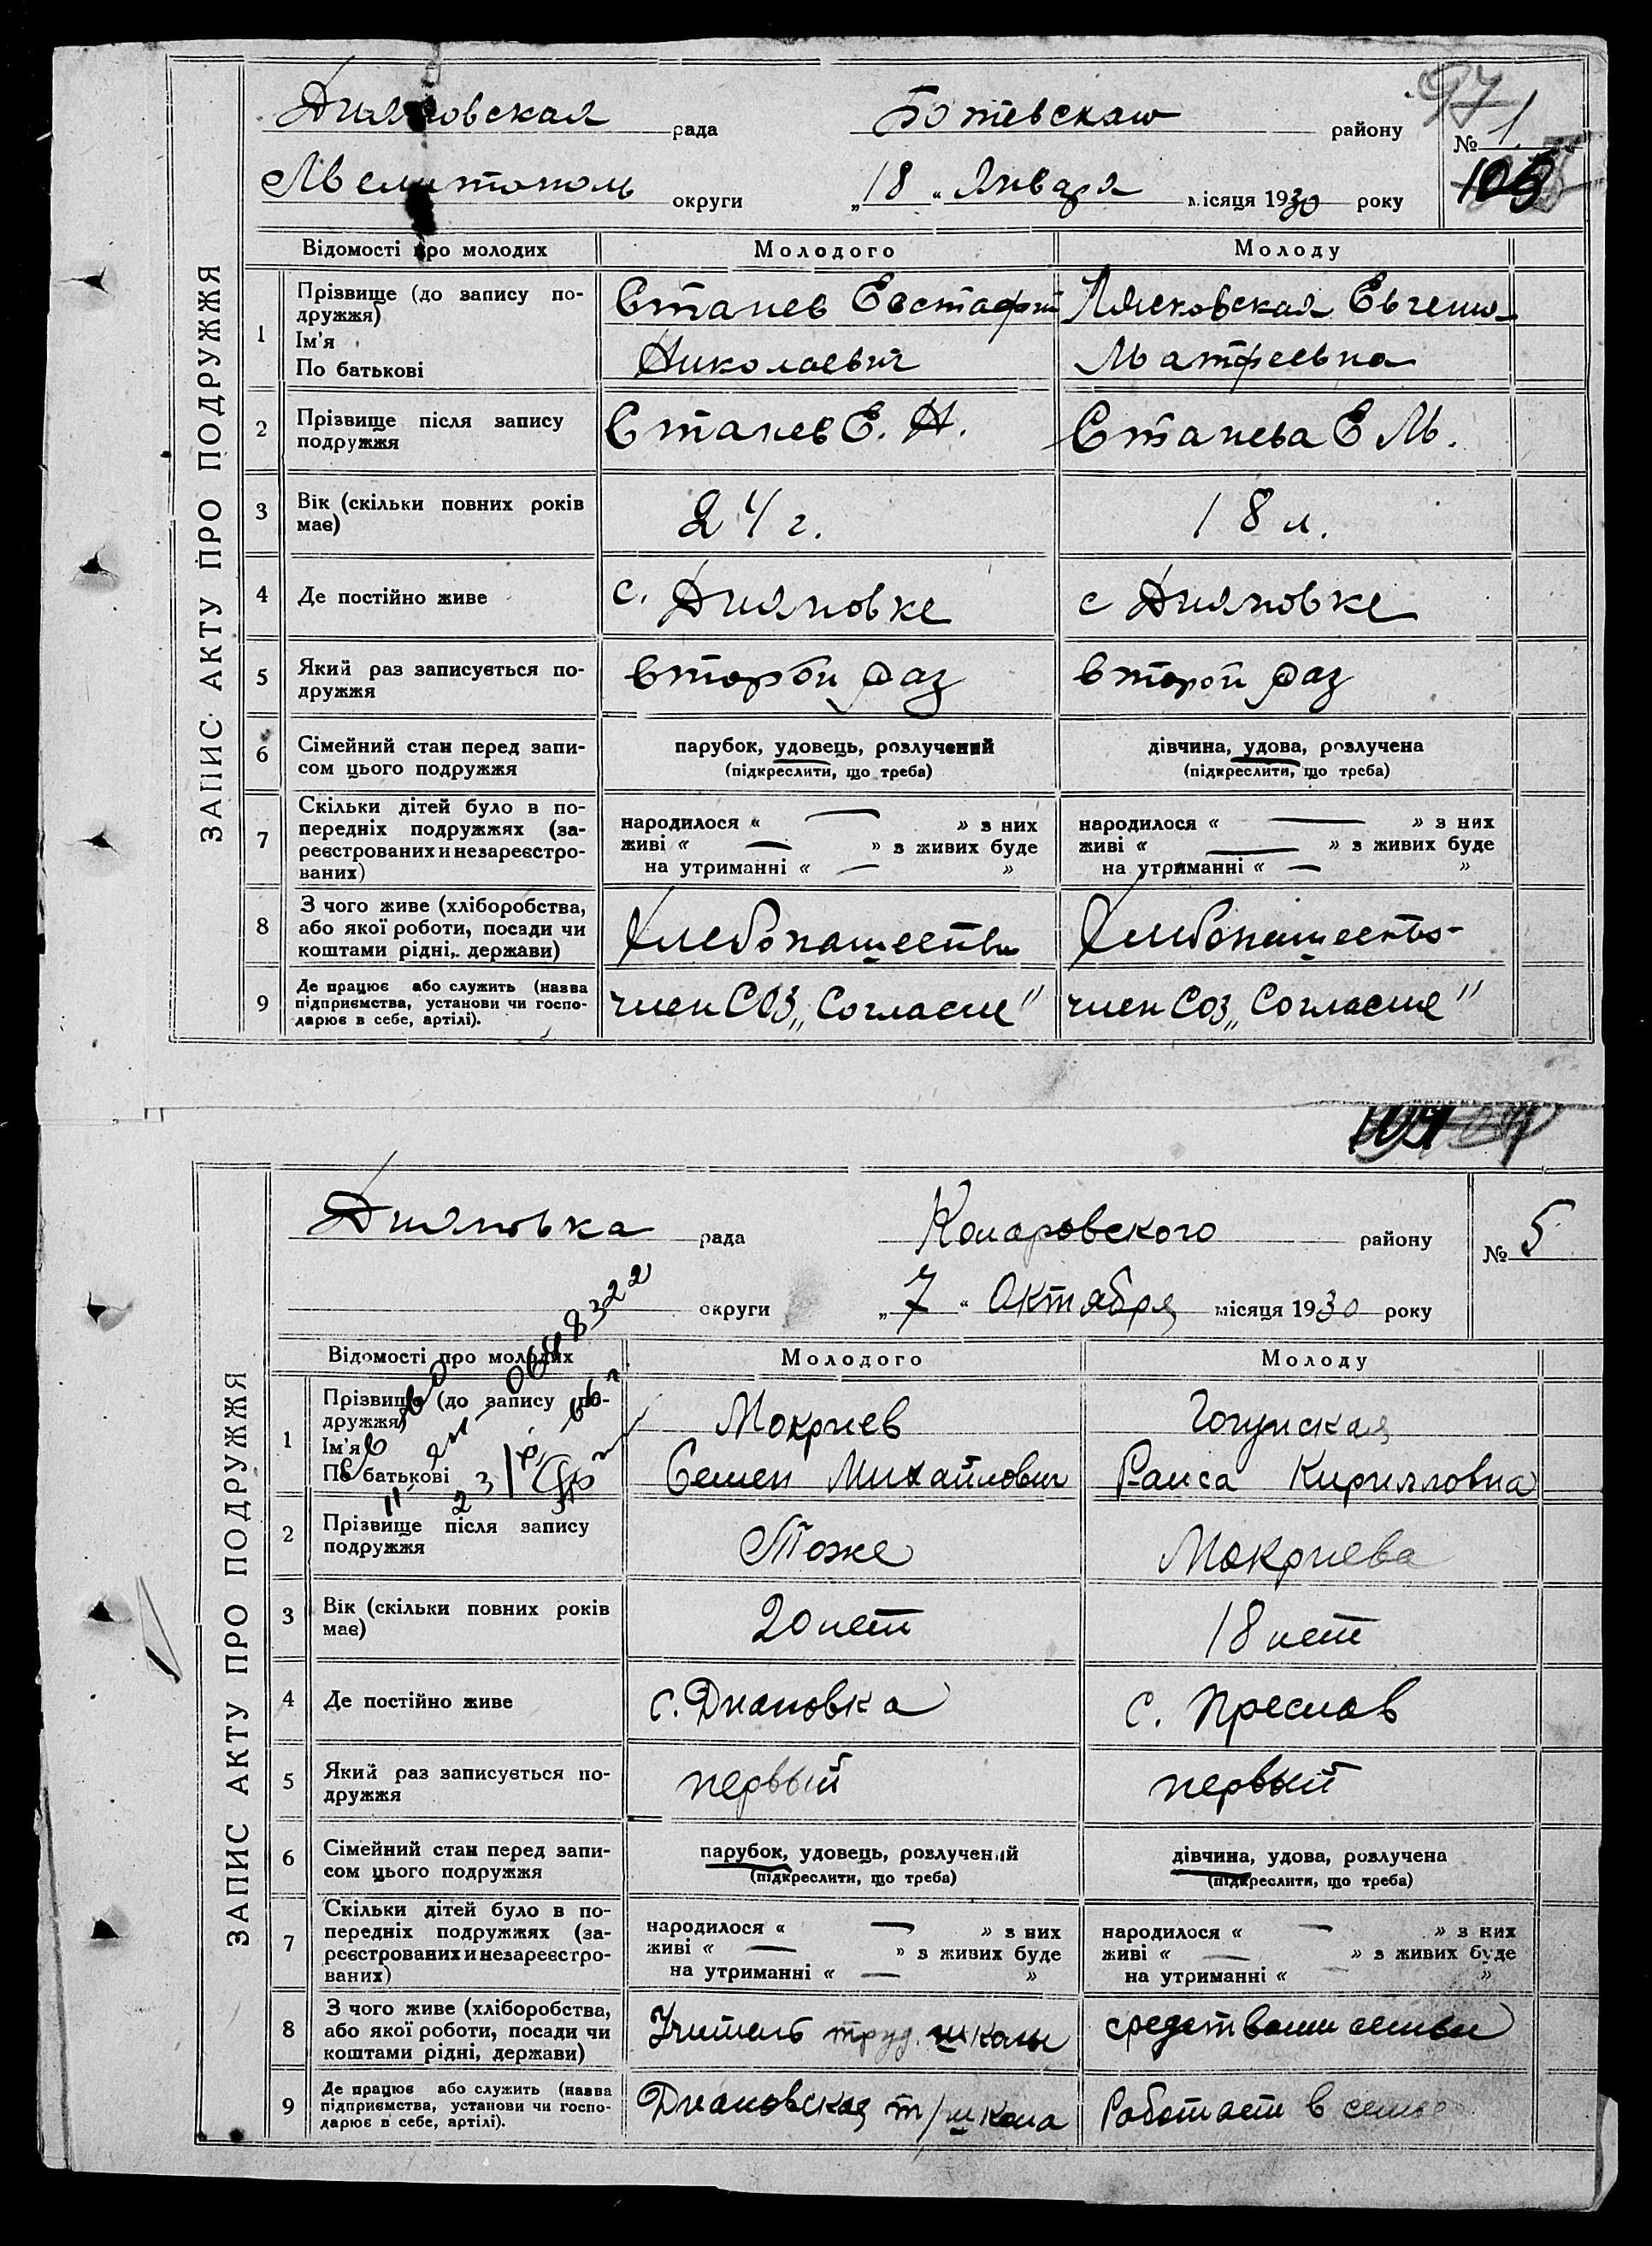 ЗАПИС АКТУ ПРО ПОДРУЖЖЯ
97
Дияновская рада Ботевскаш району № 1
109
Мелитополь округи „18“ Января місяця 1930 року
Відомості про молодих Молодого Молоду
1 Прізвище (до запису по-
дружжя)
Ім'я
По батькові
Станев Евстафий
Николаевич
Лясковская Евгения
Матфеевна
2 Прізвище після запису
подружжя
Станев Е. Н.
Станева Е М.
3 Вік (скільки повних років
має)
24 г.
18 л.
4 Де постійно живе
с. Дияновке
с Дияновке
5 Який раз записується по-
дружжя
второй раз
второй раз
6 Сімейний стан перед запи-
сом цього подружжя
парубок, удовець, розлучений
(підкреслити, що треба)
дівчина, удова, розлучена
(підкреслити, що треба)
7 Скільки дітей було в по-
передніх подружжях (за-
реєстрованих и незареєстро-
ваних)
народилося « — » з них
живі « — » з живих буде
на утриманні « — »
народилося « — » з них
живі « — » з живих буде
на утриманні « — »
8 З чого живе (хліборобства,
або якої роботи, посади чи
коштами рідні,. держави)
Хлебопашество
Хлебопашество
9 Де працює або служить (назва
підприємства, установи чи госпо-
дарює в себе, артілі).
член СОЗ „Согласие"
член Соз „Согласие"
ЗАПИС АКТУ ПРО ПОДРУЖЖЯ
Дияновка рада Коларовского району № 5
округи „7“ Октября місяця 1930 року
Відомості про молодих Молодого Молоду
1 Прізвище (до запису по-
дружжя)
Ім'я
По батькові
Мокриев
Семен Михайлович
Гогунская
Раиса Кирилловна
2 Прізвище після запису
подружжя
Тоже
Мокриева
3 Вік (скільки повних років
має)
20 лет
18 лет
4 Де постійно живе
с. Диановка
с. Преслав
5 Який раз записується по-
дружжя
первый
первый
6 Сімейний стан перед запи-
сом цього подружжя
парубок, удовець, розлучений
(підкреслити, що треба)
дівчина, удова, розлучена
(підкреслити, що треба)
7 Скільки дітей було в по-
передніх подружжях (за-
реєстрованих и незареєстро-
ваних)
народилося « — » з них
живі « — » з живих буде
на утриманні « — »
народилося « — » з них
живі « — » з живих буде
на утриманні « »
8 З чого живе (хліборобства,
або якої роботи, посади чи
коштами рідні, держави)
Учитель труд. школы
средствами семьи
9 Де працює або служить (назва
підприємства, установи чи госпо-
дарює в себе, артілі).
Диановская т/школа
Работает в семье